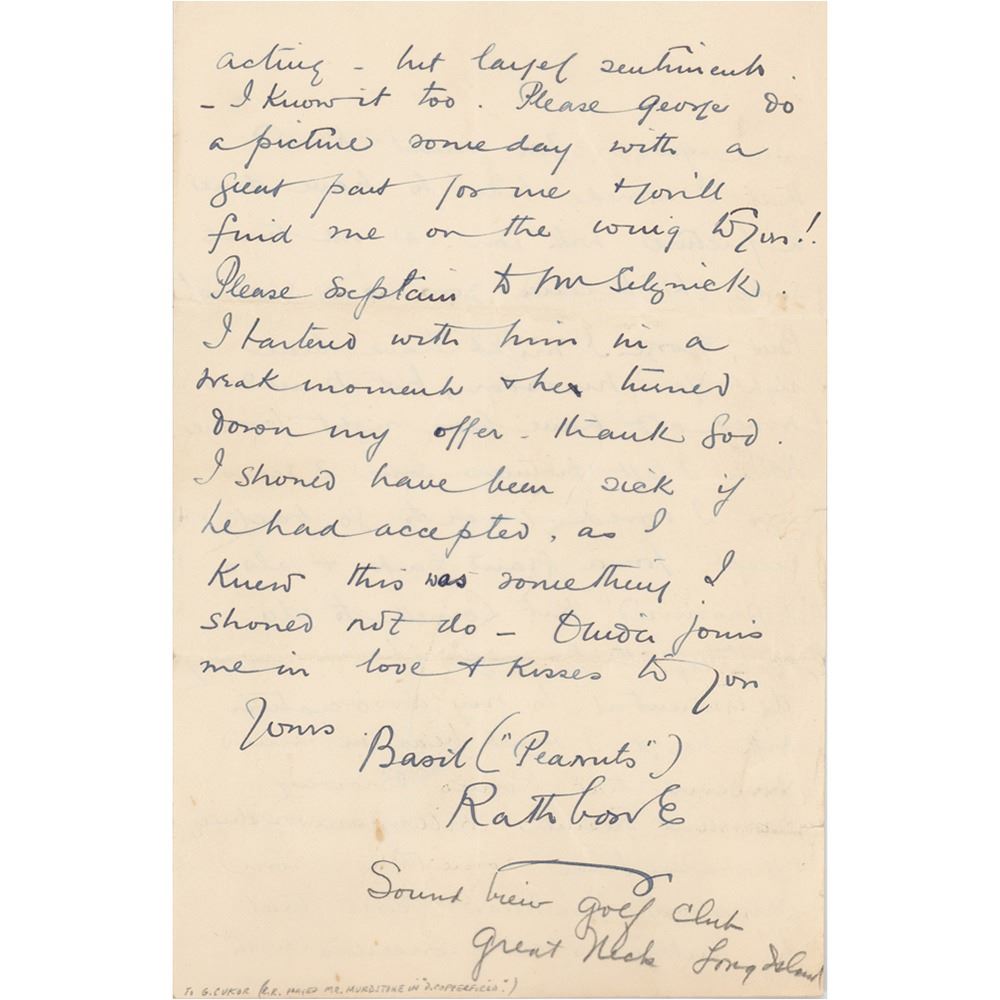 acting - but largely sentiments.
- I know it too. Please George do
a picture someday with a
great part for me & you'll
find me on the wing to you!!
Please explain to Mr Selznick.
I bartered with him in a
weak moment & he turned
down my offer - thank God.
I should have been sick if
he had accepted, as I
knew this was something I
should not do - Ouida joins
me in love & kisses to you
Yours
Basil ("Peanuts")
Rathbone
Sound View Golf Club
Great Neck Long Island
TO G. CUKOR (B.R. PLAYED MR. MURDSTONE IN "D. COPPERFIELD".)